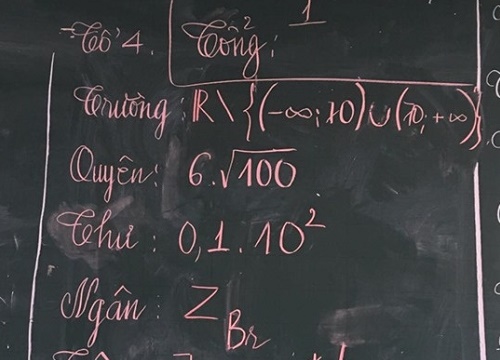 Tổ 4. Tổng:
Trường: ℝ\{(-∞;10)∪(10;+∞)}
Quyên: 6.√100
Thư: 0,1.10²
Ngân: Z_Br